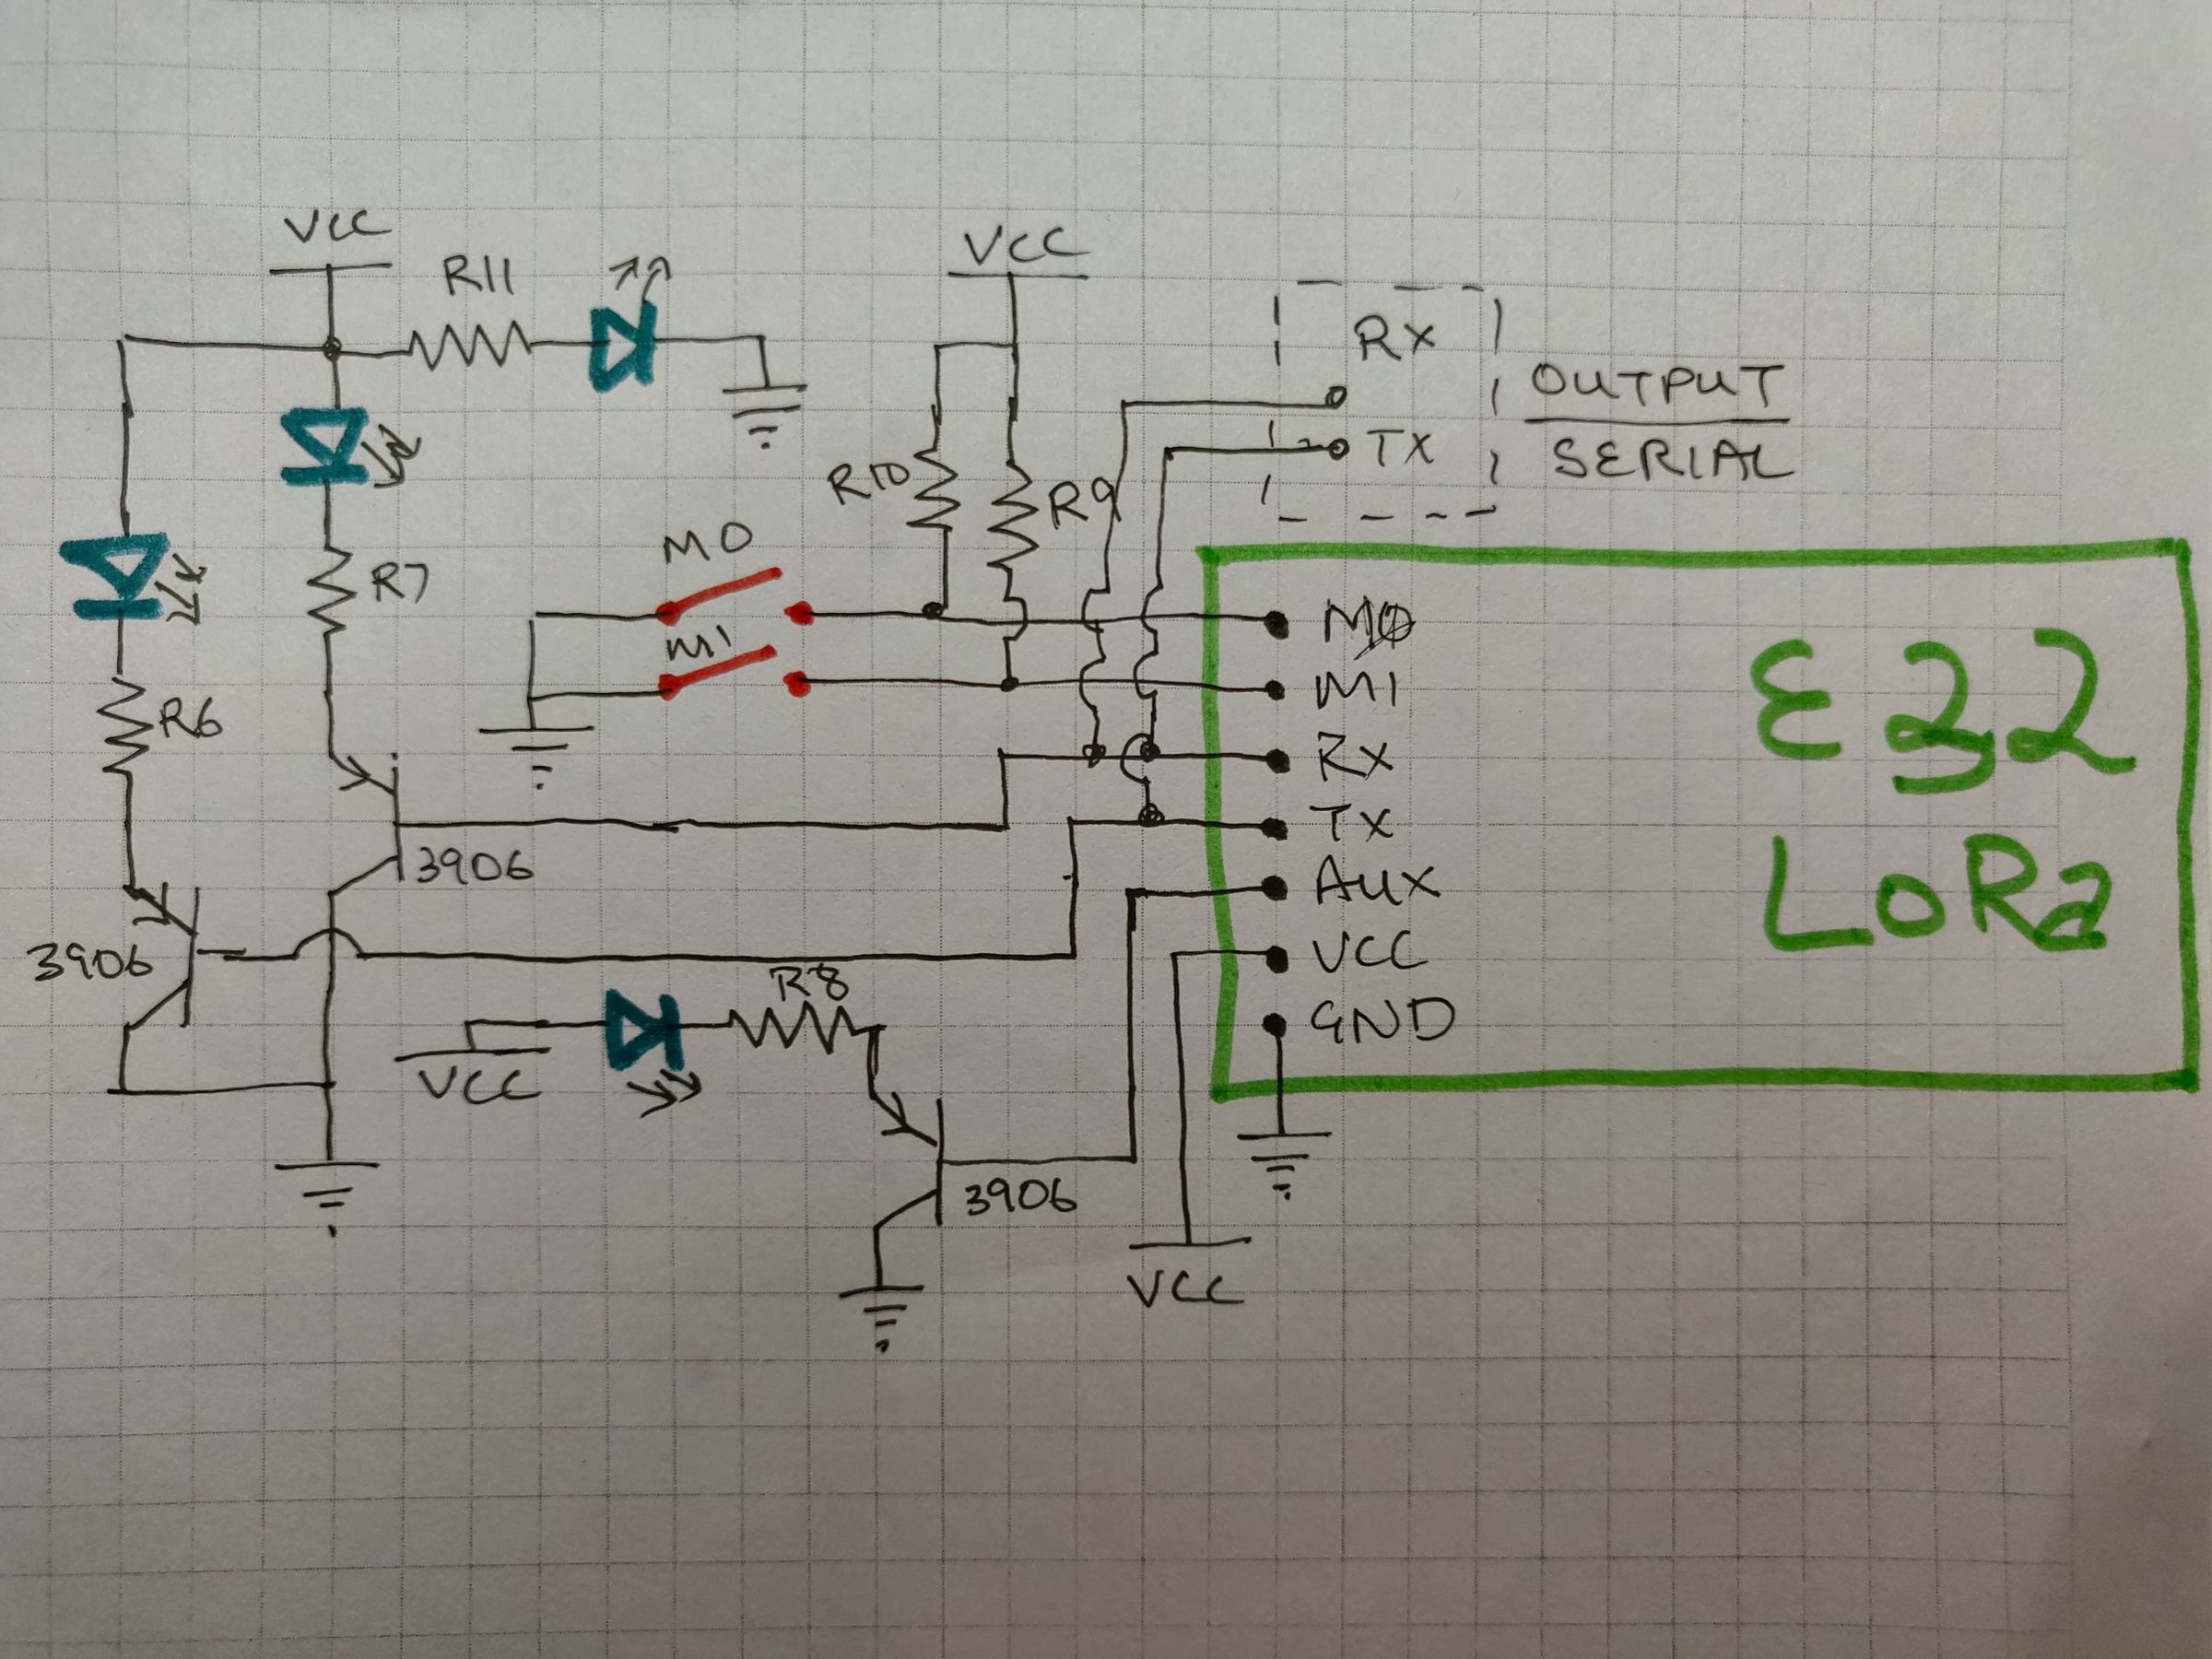 VCC
R11
VCC
Rx
OUTPUT
TX
SERIAL
R10
R9
M0
R7
M1
R6
MØ
M1
Rx
Tx
Aux
VCC
GND
E32
LoRa
3906
3906
R8
VCC
3906
VCC